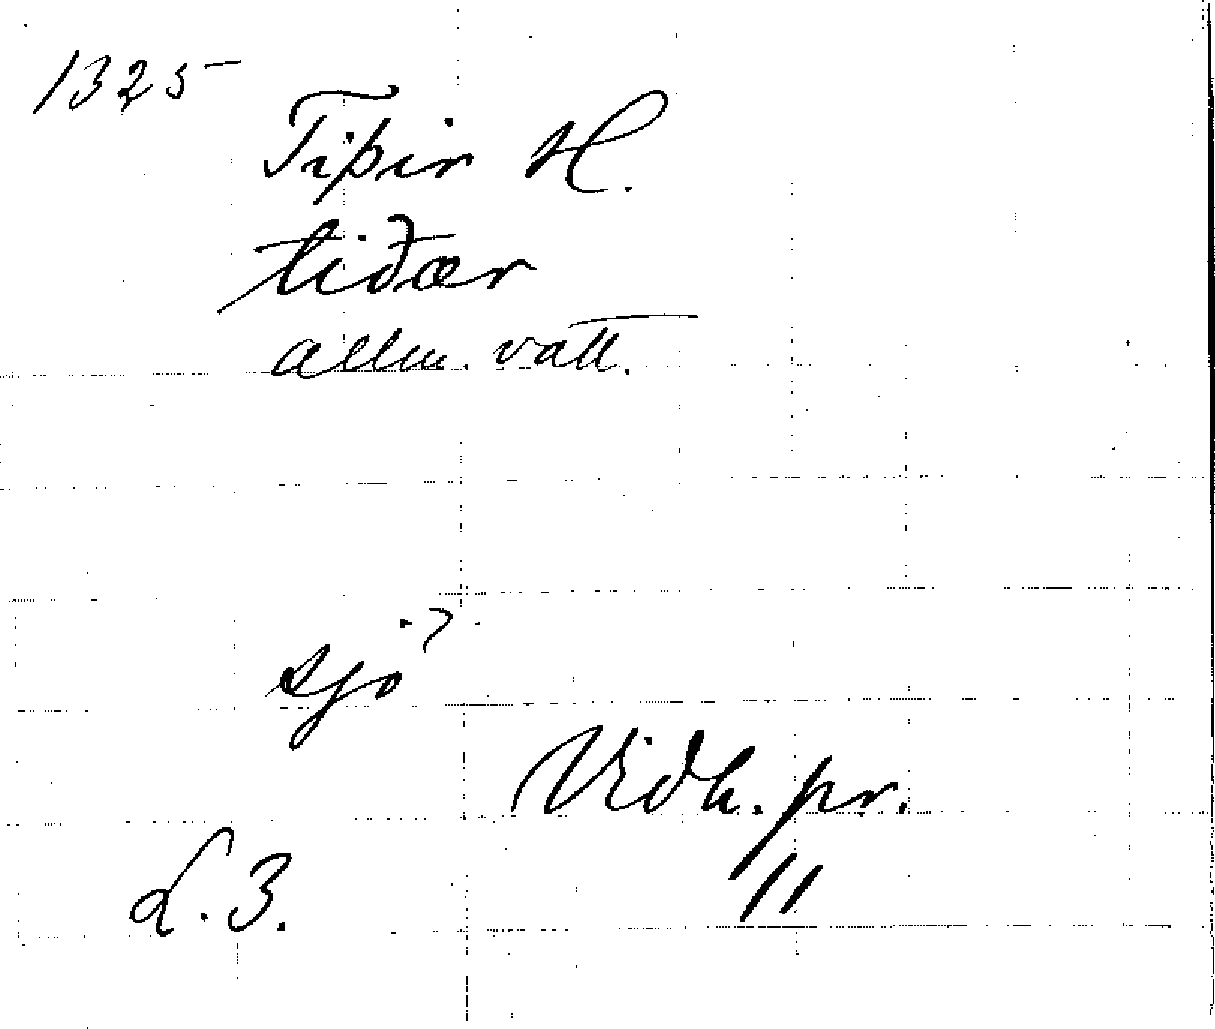 1325
Tiþir H.
tiðær
allm. vatt.
sjö ?
Vidh. pr.
L. 3.
11